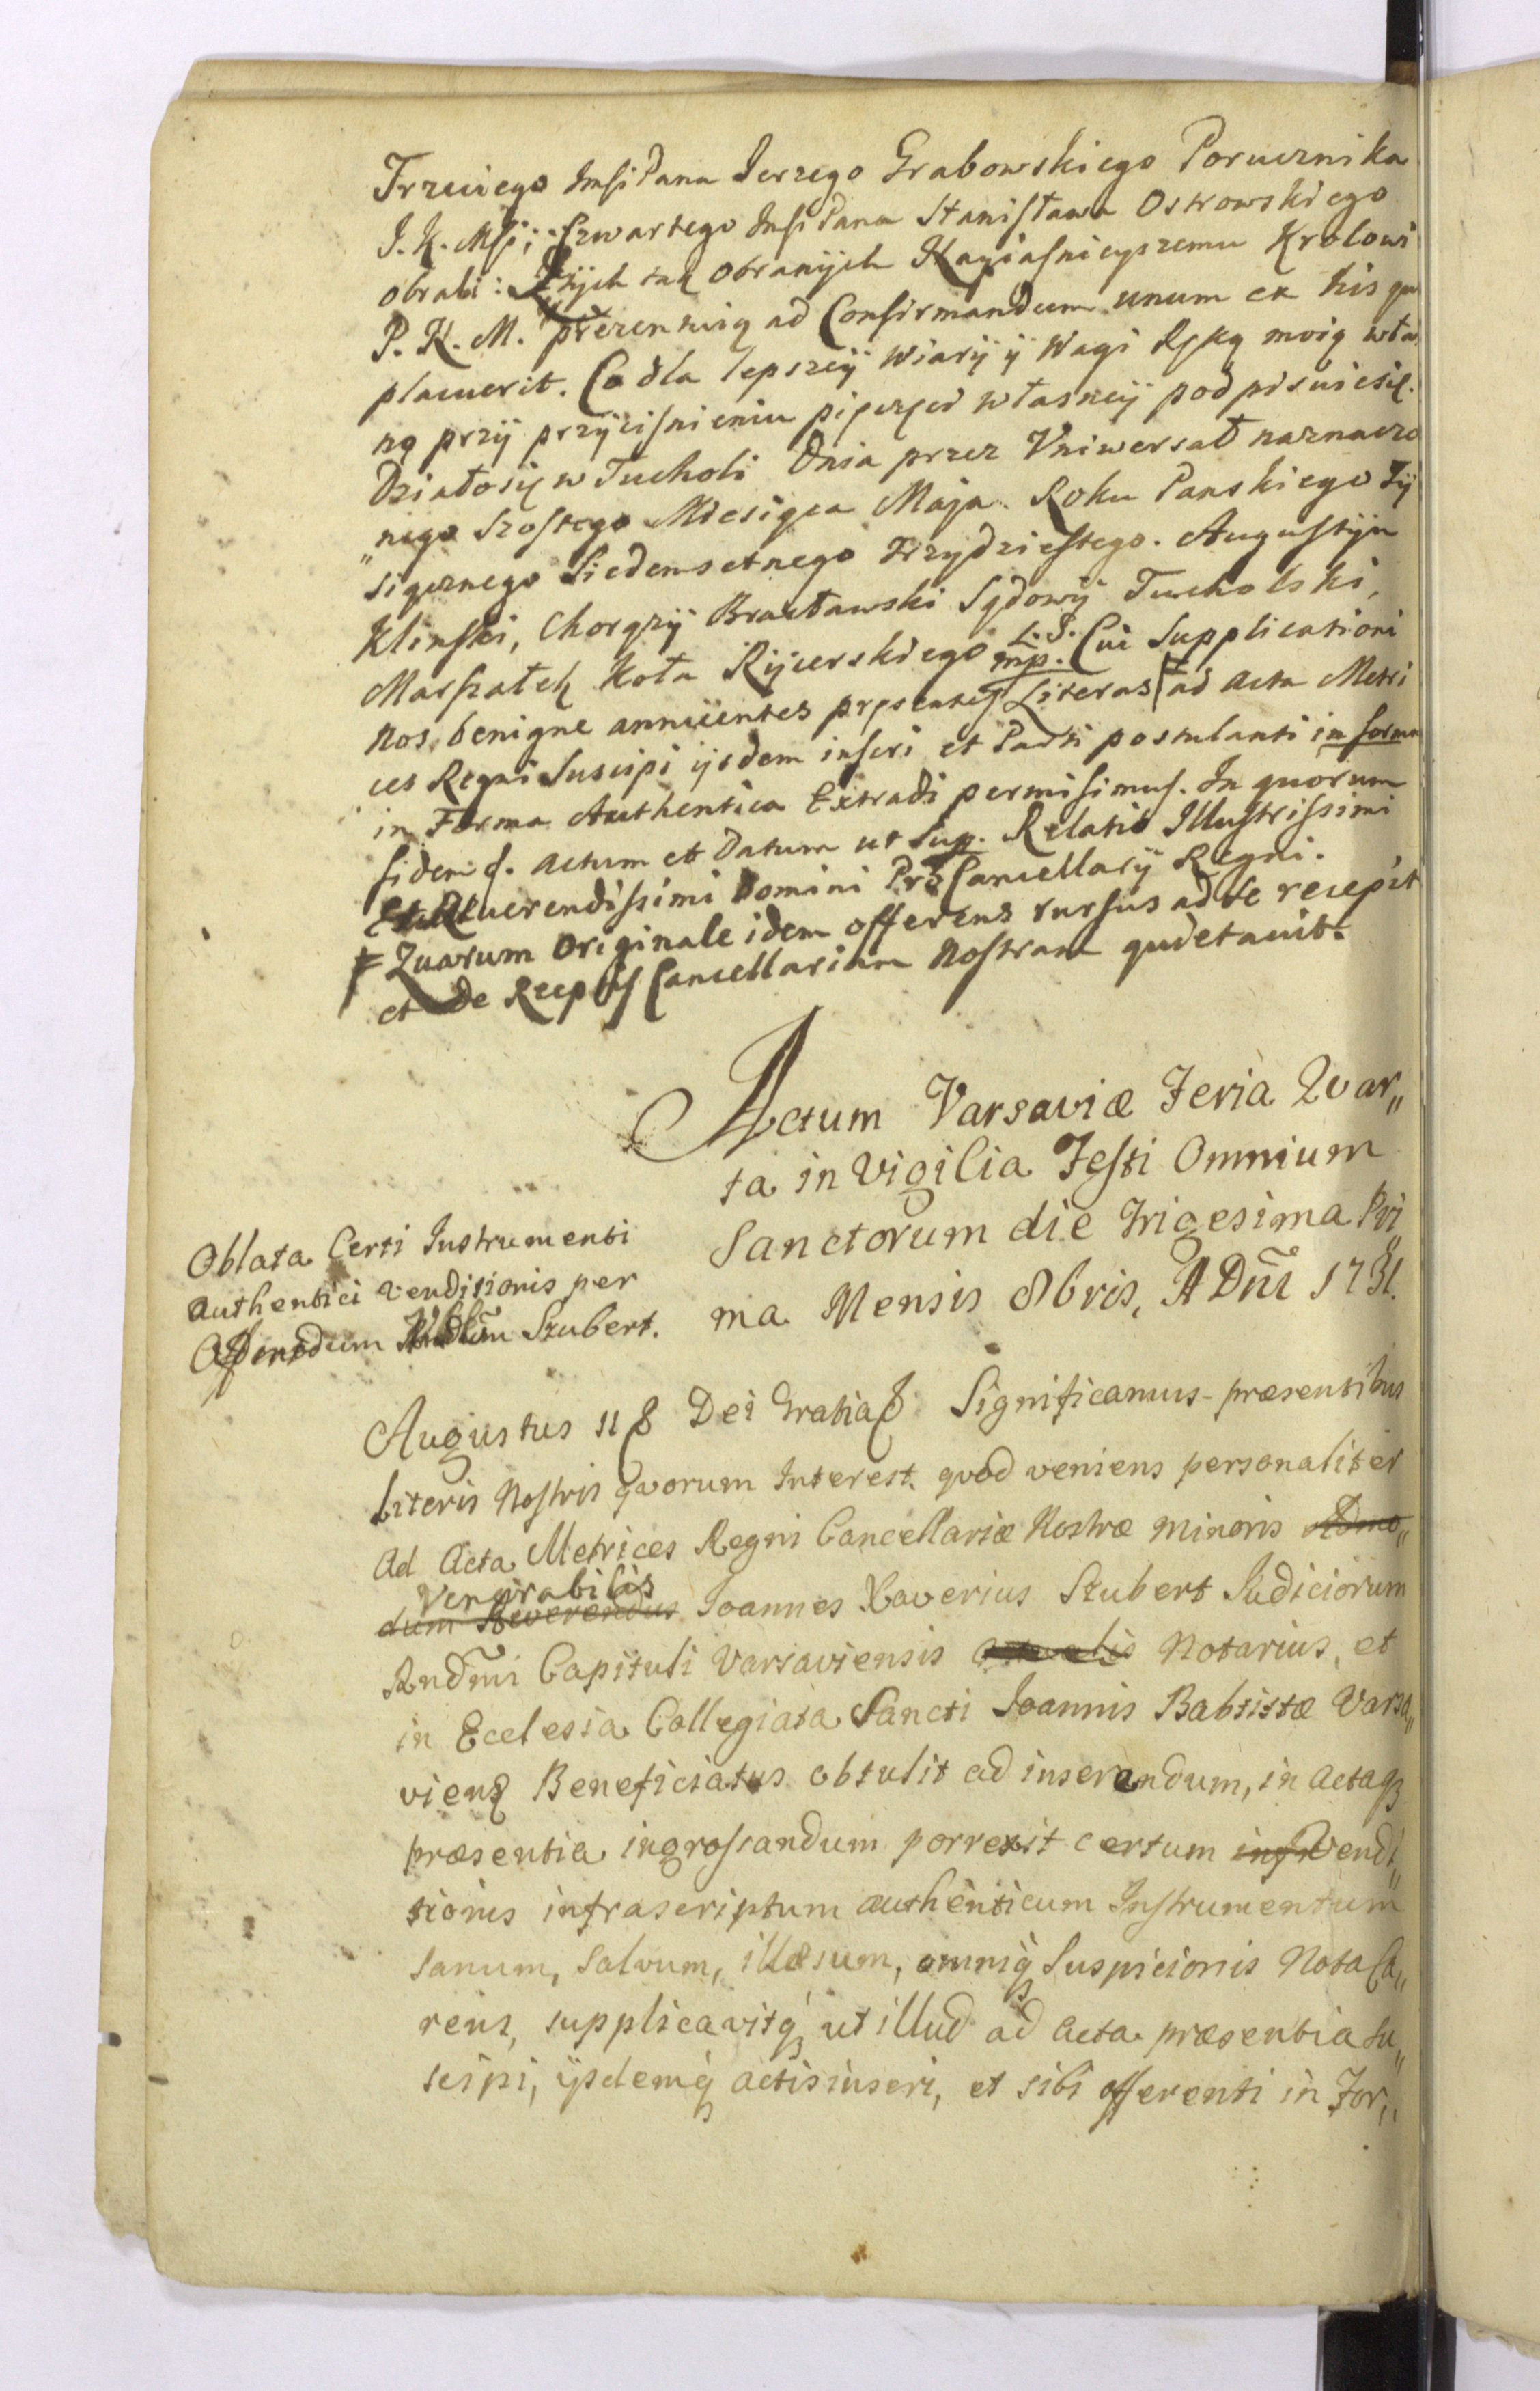 Trzeciego Imsci Pana Jerzego Grabowskiego Porucznika
J. K. Msci; Czwartego Imsci Pana Stanisława Ostrowskiego
obrali: Ktych tak obranÿch Nayiasnieyszemu Krolowi
P. N. M. prezentuią ad Confirmandum unum ex his qui
placuerit. Co dla lepszeÿ wiarÿ ÿ Wagi Ręką moią włas
ną przÿ przÿcisnieniu pieczęci własneÿ podpisuiesię.
Działosię w Tucholi Dnia przez Vniwersał naznaczo
„nego Szostego Miesiąca Maja. Roku Panskiego Tÿ
siącznego Siedemsetnego trzydziestego. Augustÿn
Klinski, Chorązÿ Bracławski Sądowÿ Tucholski,
Marszałek Koła Rÿcerskiego L.S. mp. Cui Supplicationi
Nos benigne annuentes pręsentes Literas ǂ ad Acta Metri
ces Regni Suscipi ijsdem inseri et Parti postulanti in forma
in Forma Authentica Extradi permisimus. In quorum
fidem &. Actum et Datum ut Sup. Relatio Illustrissimi
et Reuerendissimi Domini ProCancellarÿ Regni.
ǂ Quarum Originale idem offerens rursus ad se recepit
et de Receptis Cancellariam Nostram quietauit.
Actum Varsaviæ Feria Qvar„
ta in Vigilia Festi Omnium
Sanctorum die trigesima Pri„
ma Mensis 8bris, A Dñi 1731.
Oblata Certi Instrumenti
Authentici Venditionis per
Szubert.
Augustus II & Dei Gratia &. Significamus præsentibus
Literis Nostris qvorum Interest. qvod veniens personaliter
Ad Acta Metrices Regni Cancellariæ Nostræ Minoris Admo„
Venerabilis
dum Reverendus Joannes Xaverius Szubert Judiciorum
Rndmi Capituli Varsaviensis Notarius, et
in Ecclesia Collegiata Sancti Joannis Babtistæ Varsa„
viens Beneficiatus obtulit ad inserendum, in actaq3
præsentia ingrossandum porrexit certum infr Vendi„
tionis infrascriptum authenticum Instrumentum
sanum, salvum, illæsum, omniq3 Suspicionis Nota Ca„
rens, supplicavitq3 ut illud ad Acta præsentia su„
scipi, ijsdemq3 actis inseri, et sibi offerenti in For„